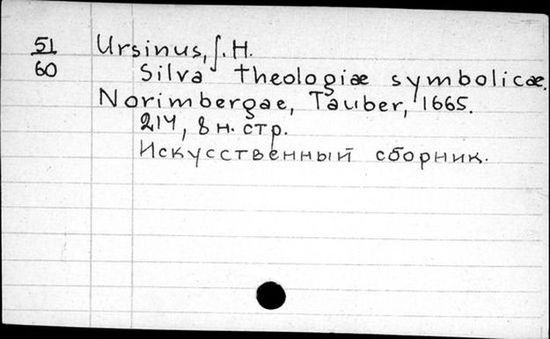 51
60
Ursinus, J. H.
Silva theologiæ symbolicæ.
Norimbergae, Tauber, 1665.
214, 8 н. стр.
Искусственный сборник.